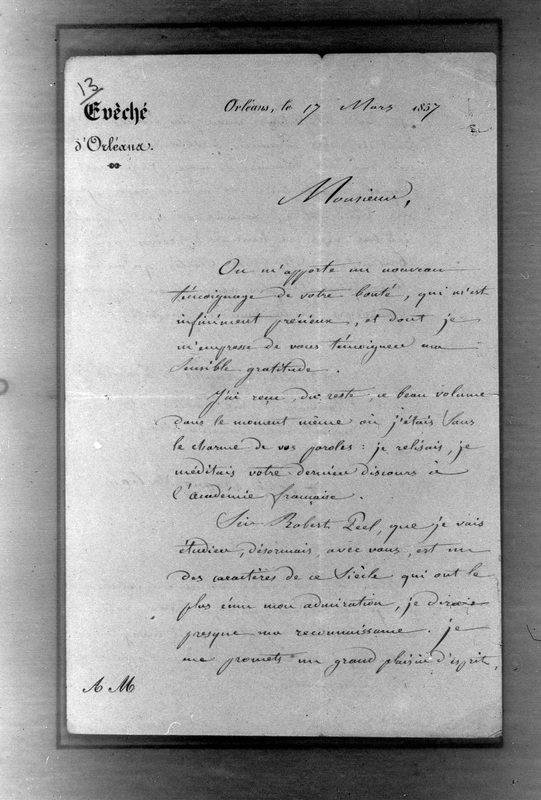 13
Evêché
d'Orléans.
Orléans, le 17 Mars 1857
Monsieur,
On m'apporte un nouveau
témoignage de votre bonté, qui m'est
infiniment précieux, et dont je
m'empresse de vous témoigner ma
sensible gratitude.
J'ai reçu, du reste, ce beau volume
dans le moment même où j'étais sous
le charme de vos paroles : je relisais, je
méditais votre dernier discours à
l'académie française.
Sir Robert Peel, que je vais
étudier, désormais, avec vous, est un
des caractères de ce Siècle qui ont le
plus ému mon admiration, je dirais
presque ma reconnaissance. je
me promets un grand plaisir d'esprit,
A M